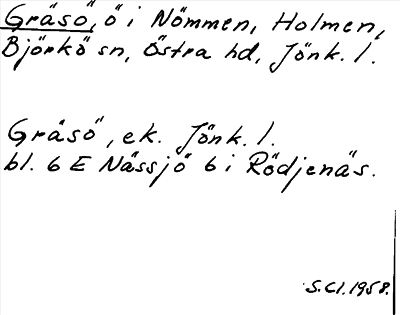 Gräsö, ö i Nömmen, Holmen,
Björkö sn, Östra hd, Jönk. l.
Gräsö, ek. Jönk. l.
bl. 6 E Nässjö 6 i Rödjenäs.
S.Cl.1958.